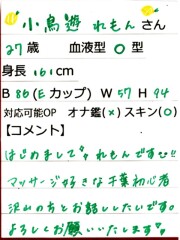 小鳥遊 れもん さん
27歳 血液型 O 型
身長 161cm
B 86(E カップ) W 57 H 94
対応可能OP オナ鑑(×)スキン(○)
【コメント】
はじめまして♡れもんです
マッサージ好きな千葉初心者
沢山の方とお話ししたいです。
よろしくお願いいたします